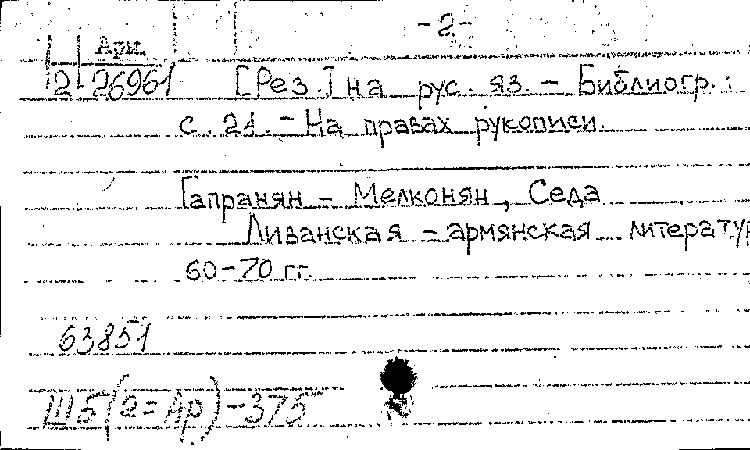 -2-
Арм.
2 26961 [Рез.] на рус. яз. - Библиогр.:
с. 21. - На правах рукописи.
Гапранян - Мелконян, Седа
Ливанская - армянская литератур
60-70 гг.
63851
Ш5(2=Ар)-375